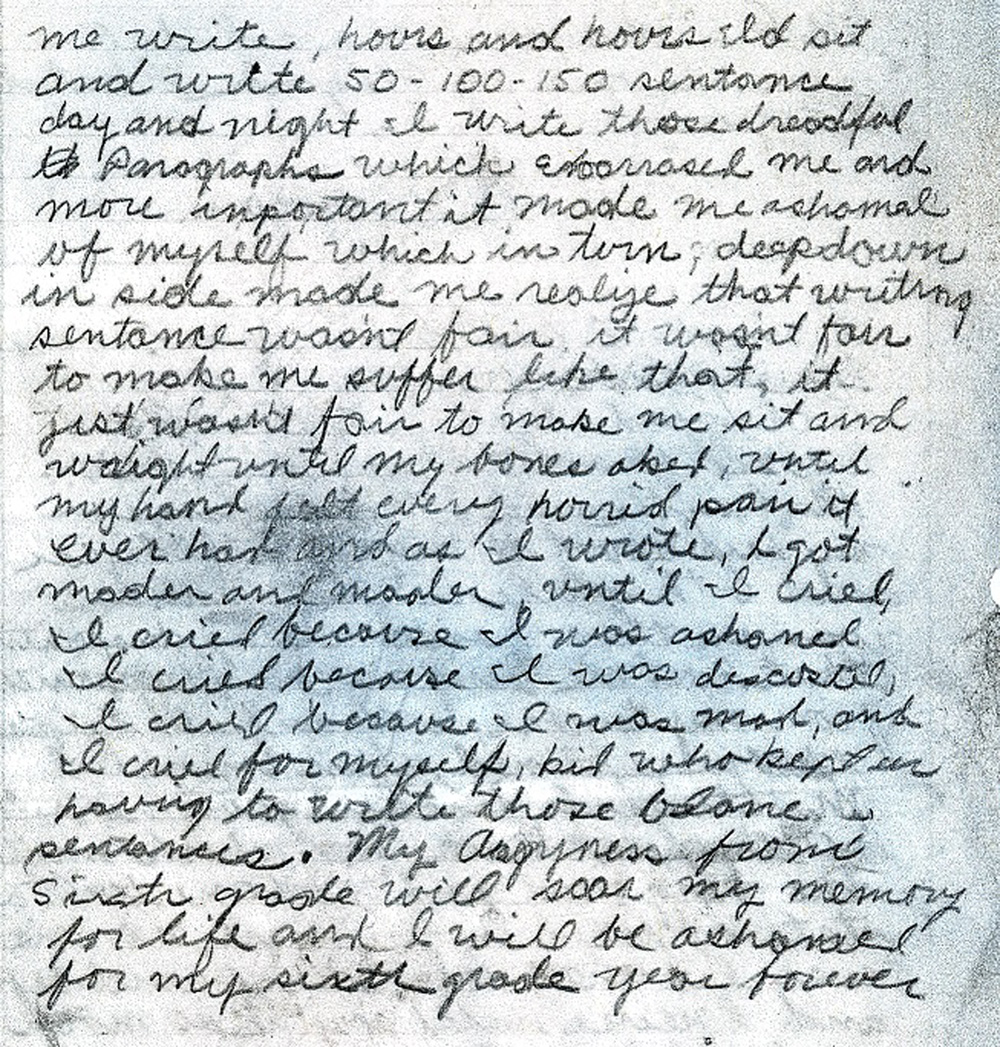 me write, hours and hours I'ld sit
and write 50-100-150 sentance
day and night I write those dreadful
Paragraphs which embarrased me and
more inportant it made me ashamed
of myself which in turn, deep down
in side made me realize that writing
sentance wasn't fair it wasn't fair
to make me suffer like that, it
just wasn't fair to make me sit and
waight until my bones aked, until
my hand felt every horrid pain it
ever had and as I wrote, I got
mader and mader, until I cried,
I cried because I was ashamed
I cried because I was discusted,
I cried because I was mad, and
I cried for myself, kid who kept on
having to write those
sentances. My Angryness from
Sixth grade will scar my memory
for life and I will be ashamed
for my sixth grade year forever